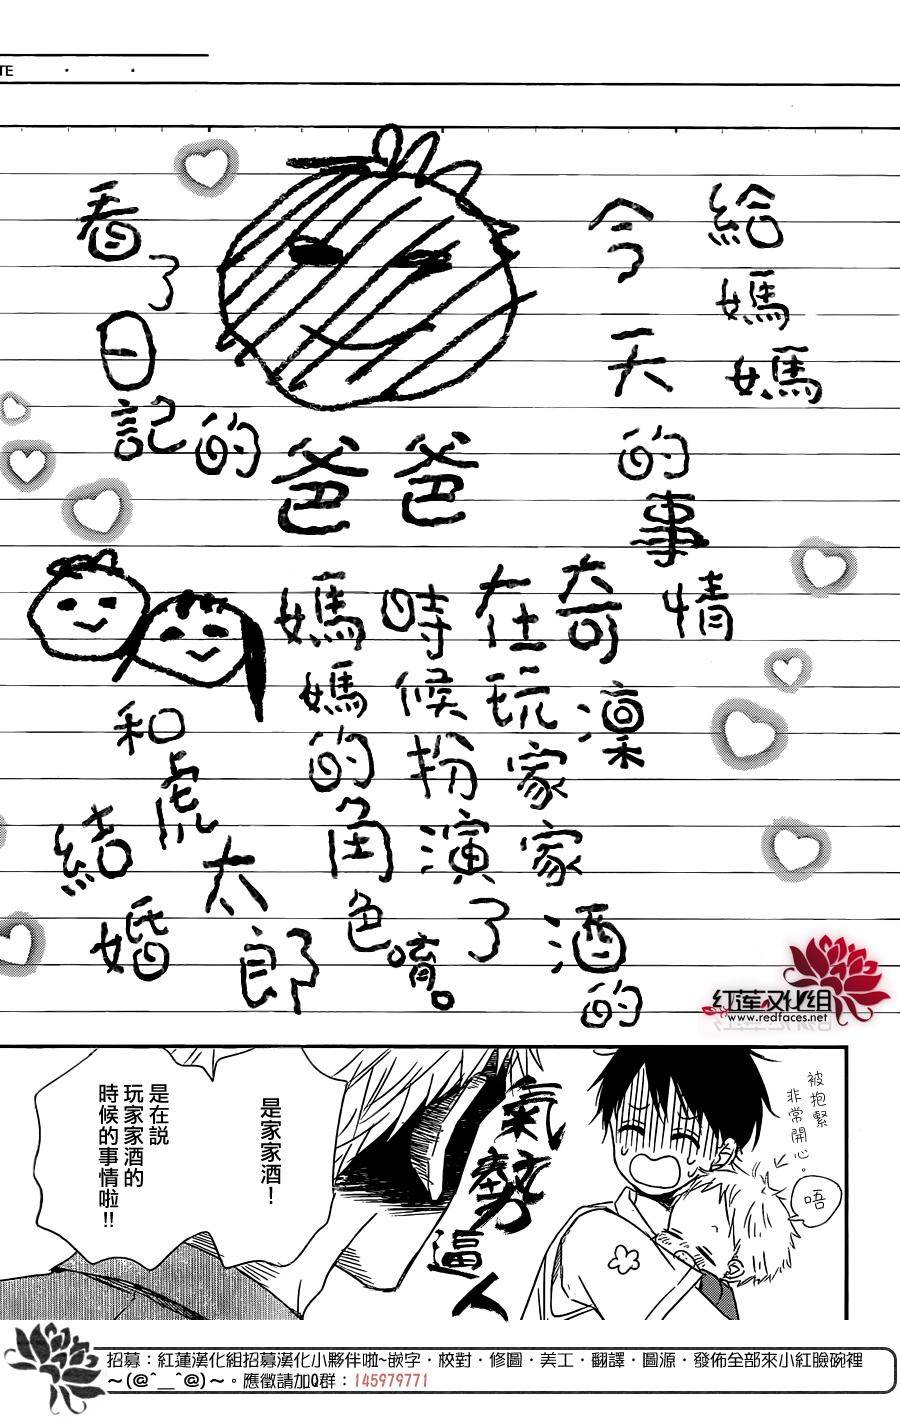 TE
給媽媽
今天的事情
奇凜
在玩家家酒的
時候扮演了
媽媽的角色唷。
看了日記的
爸爸
和虎太郎
結婚
紅蓮漢化組
www.redfaces.net
被抱緊
非常開心。
唔
氣勢逼人
是家家酒！
是在說
玩家家酒的
時候的事情啦!!
招募：紅蓮漢化組招募漢化小夥伴啦~嵌字·校對·修圖·美工·翻譯·圖源·發佈全部來小紅臉碗裡
～(@^__^@)～。應徵請加Q群：145979771